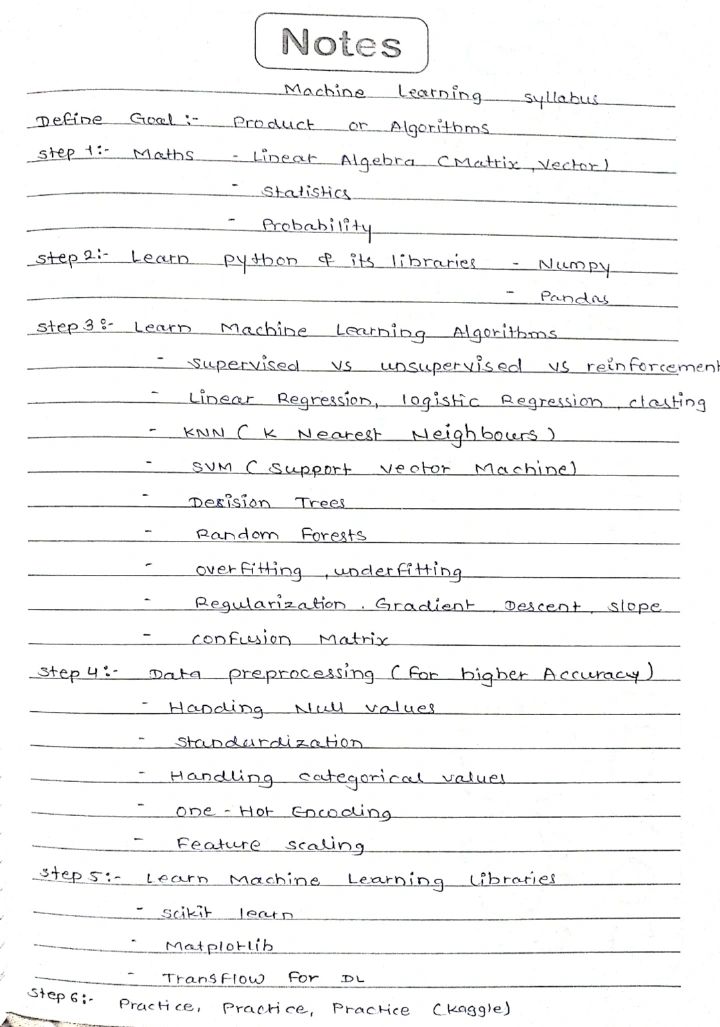 Notes
Machine Learning syllabus
Define Goal :- Product or Algorithms
Step 1:- Maths - Linear Algebra (Matrix, Vector)
- Statistics
- Probability
Step 2:- Learn python & its libraries - Numpy
- Pandas
Step 3:- Learn Machine Learning Algorithms
- Supervised vs unsupervised vs reinforcement
- Linear Regression, logistic Regression, clasting
- KNN (K Nearest Neighbours)
- SVM (Support Vector Machine)
- Desision Trees
- Random Forests
- overfitting, underfitting
- Regularization. Gradient Descent, slope
- confusion Matrix
Step 4:- Data preprocessing (for higher Accuracy)
- Handing Null values
- Standardization
- Handling categorical values
- One-Hot Encoding
- Feature scaling
Step 5:- Learn Machine Learning Libraries
- Scikit learn
- Matplotlib
- Transflow for DL
Step 6:- Practice, Practice, Practice (kaggle)